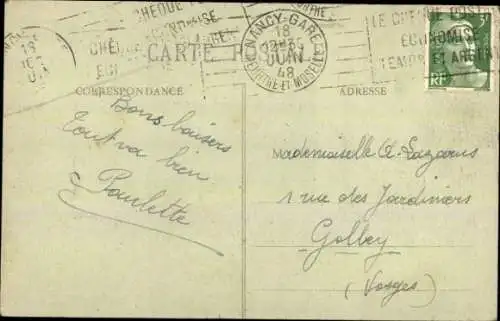 CHÈQUE POSTAL
ÉCONOMISE
CARTE POSTALE
NANCY-GARE
18
JUIN
48
MEURTHE ET MOSELLE
LE CHÈQUE POSTAL
ÉCONOMISE
TEMPS ET ARGENT
3F
RF
CORRESPONDANCE
ADRESSE
Bons baisers
tout va bien
Paulette
Mademoiselle A. Lazarus
1 rue des Jardiniers
Golbey
(Vosges)